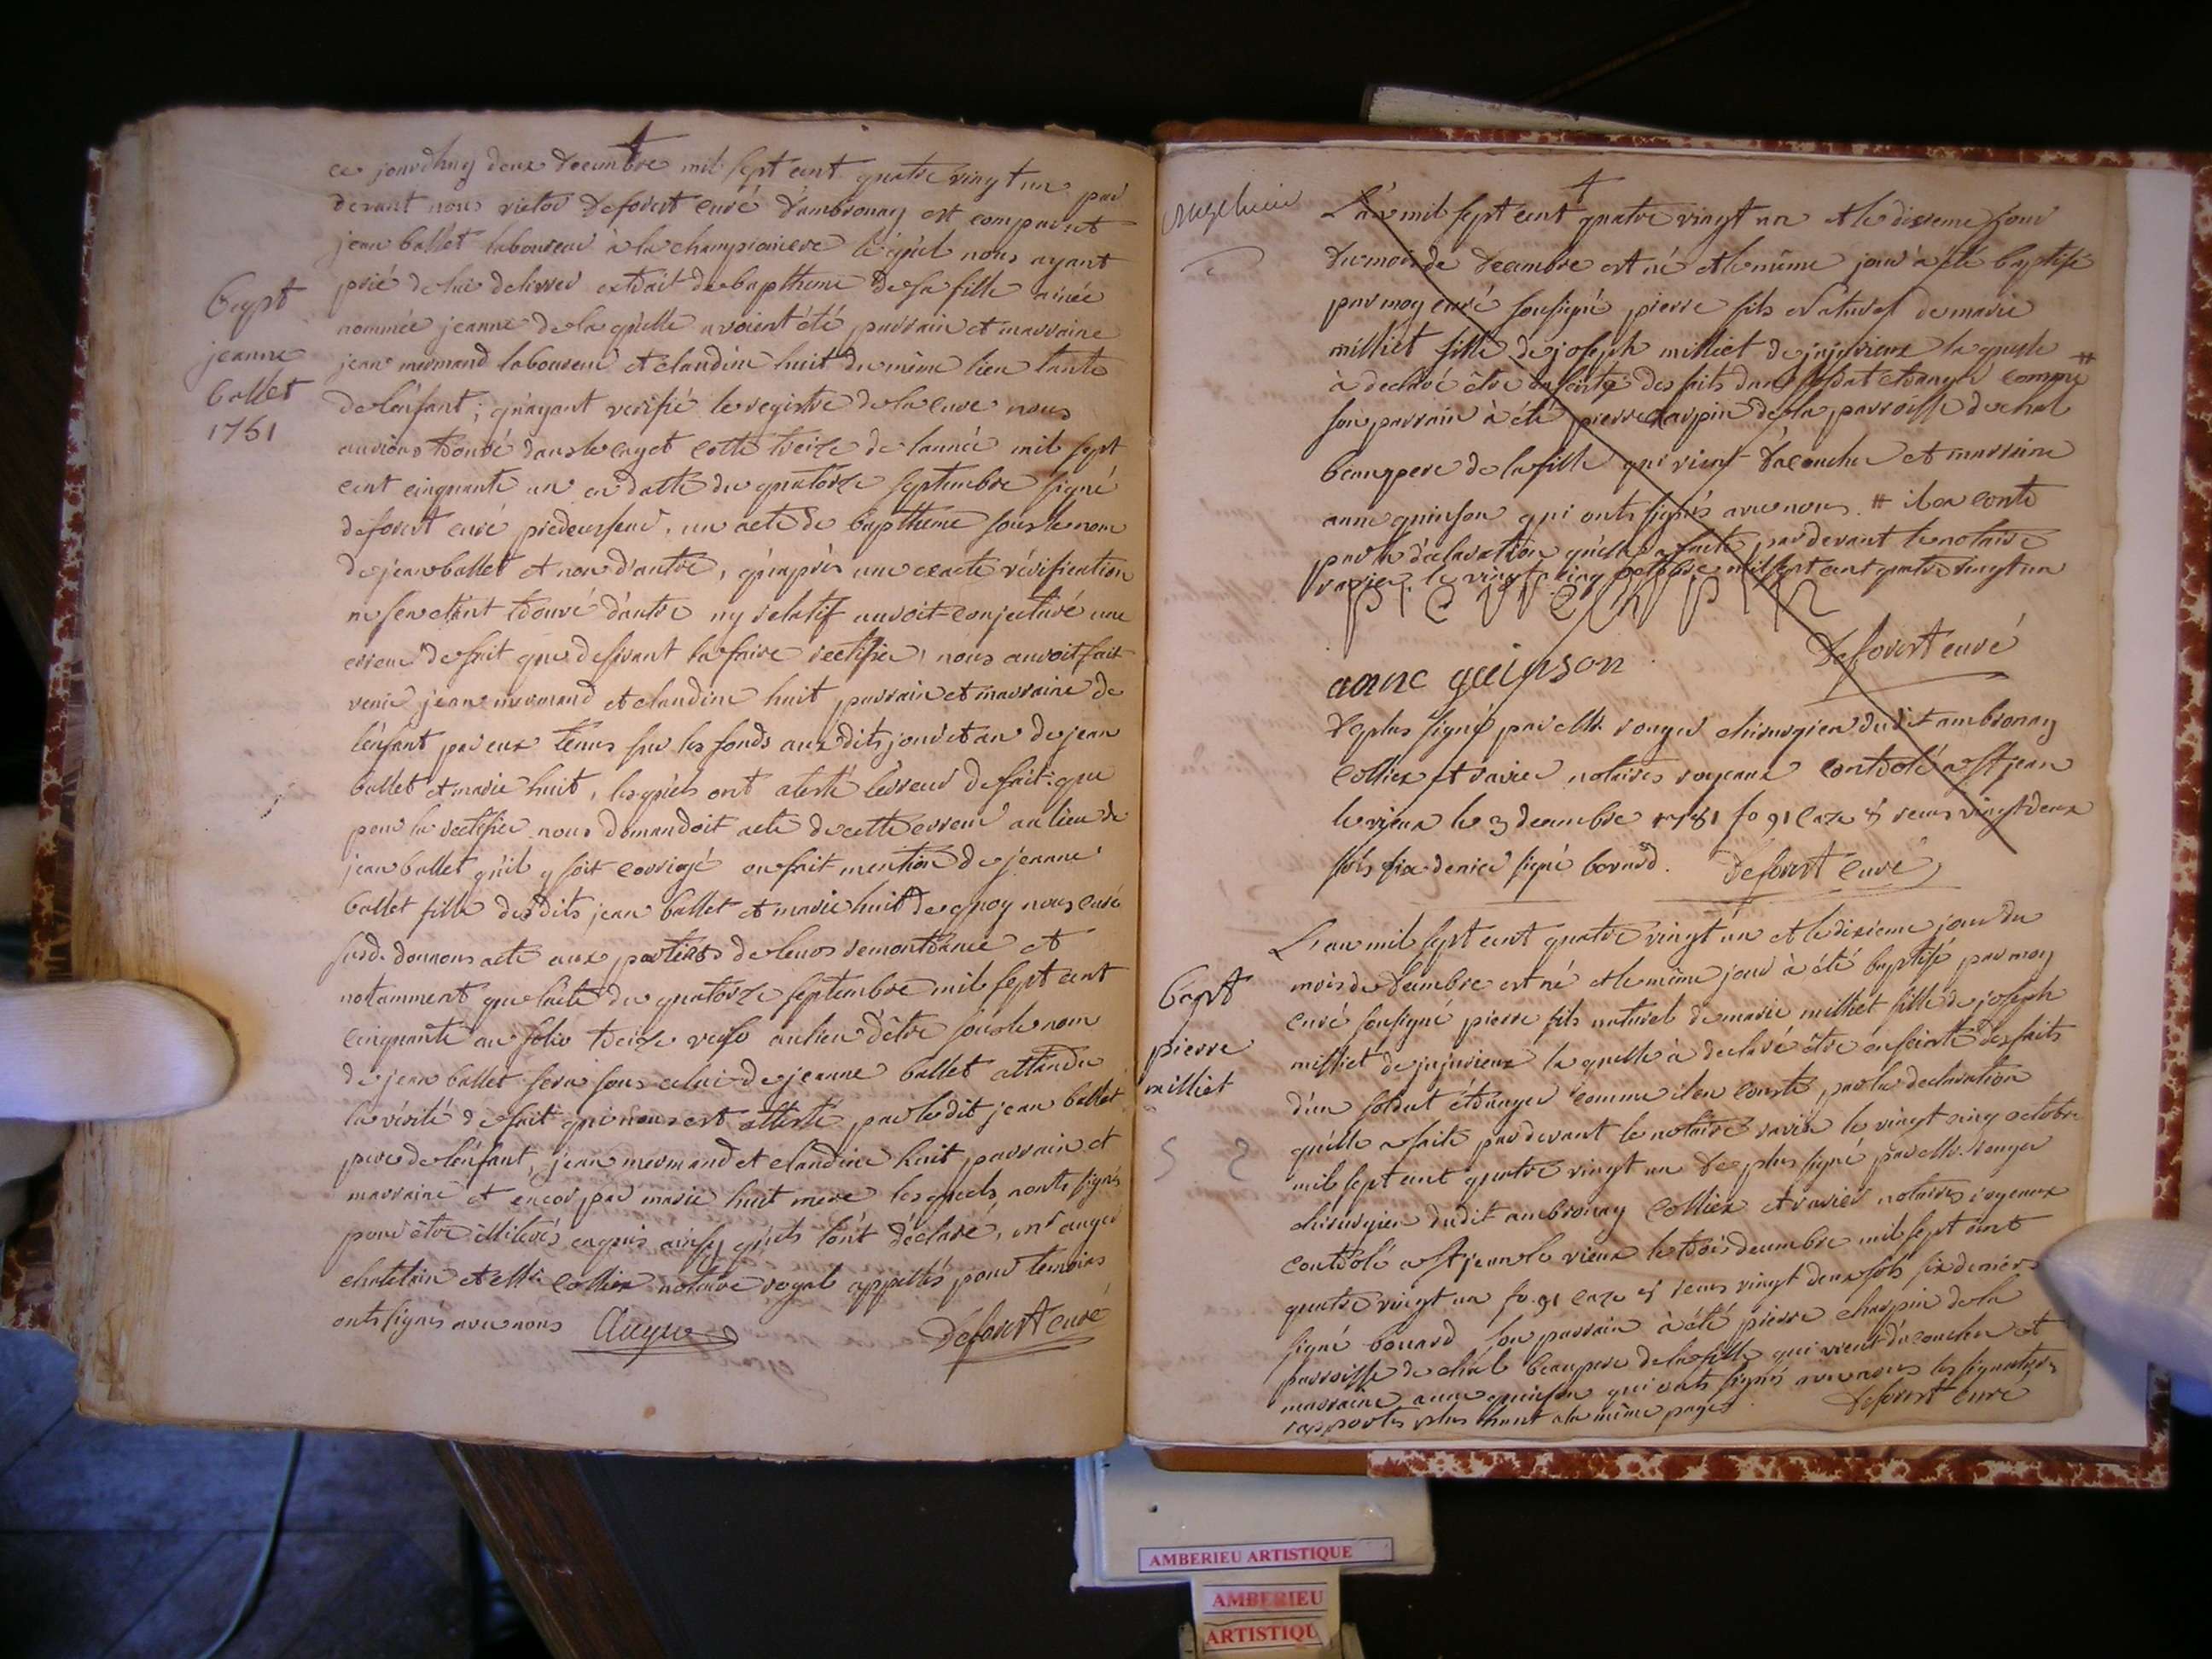 ce jourdhuy deux decembre mil sept cent quatre vingt un par
devant nous victor deforest curé d'ambronay est comparut
jean ballet laboureur à la championiere lequel nous ayant
prié de lui delivrer extrait de baptheme de sa fille ainée
nommée jeanne de la quelle avoient été parrain et marraine
jean mermand laboureur et claudine huit du même lieu tante
de lenfant; qu'ayant verifié le registre de la cure nous
aurions trouvé dans le cayet cotté treize de lannée mil sept
cent cinquante un en datte du quatorze septembre signé
deforest curé predecesseur. un acte de bapthême sous le nom
de jean ballet et non d'autre, qu'après une exacte vérification
ne s'en etant trouvé d'autre ny relatif auroit conjecturé une
erreur de fait que desirant la faire rectifier, nous auroit fait
venir jean mermand et claudine huit parrain et marraine de
lenfant par eux tenus sur les fonds aux dits jour et an de jean
ballet et marie huit, lesquels ont atesté lerreur de fait: que
pour la rectifier nous demandoit acte de cette erreur au lieu de
jean ballet qu'il y soit corrigé en fait mention de jeanne
ballet fille desdits jean ballet et marie huit de quoy nous curé
susd. donnons acte aux parties de leurs remontrance et
notamment que lacte du quatorze septembre mil sept cent
cinquante un folio treize verso au lieu d'être sous le nom
de jean ballet sera sous celui de jeanne ballet attandu
la vérité de fait qui nous est attesté par ledit jean ballet
pere de lenfant, jean mermand et claudine huit parrain et
marraine et encor par marie huit mere lesquels n'onts signés
pour être illiterés enquis ainsy qu'ils l'ont déclaré, mr auger
chatelain et Me collier notaire royal appellés pour temoins
onts signés avec nous Auger Deforest curé
bapt
jeanne
ballet
1751
L'an mil sept cent quatre vingt un et le dixieme jour
du mois de decembre est né et le même jour à été baptisé
par moy curé sousigné pierre fils naturel de marie
milliet fille de joseph milliet de jujurieux la quelle
à declaré être enceinte des faits d'un soldat etranger comme #
son parrain à été pierre charpin de la parroisse de chal
beaupere de la fille qui vient d'acoucher et marraine
anne guinson qui onts signés avec nous. # il en conste
par la déclaration qu'elle a faite par devant le notaire
ravier le vingt cinq octobre mil sept cent quatre vingt un
anne guinson Deforest curé
de plus signé par Me rouger chirurgien dudit ambronay
collier et ravier notaires royeaux controlé a st jean
le vieux le 3 decembre 1781 fo 91 caze 8 reçus vingt deux
sols six denier signé bouard. Deforest curé
bapt
pierre
milliet
L'an mil sept cent quatre vingt un et le dixieme jour du
mois de decembre est né et le même jour à été baptisé par moy
curé sousigné pierre fils naturel de marie milliet fille de joseph
milliet de jujurieux la quelle à declaré être enceinte des faits
d'un soldat étranger comme il en conste, par la declaration
quelle a faite par devant le notaire ravier le vingt cinq octobre
mil sept cent quatre vingt un de plus signé par Me rouger
chirurgien dudit ambronay collier et ravier notaires royeaux
controlé a st jean le vieux le trois decembre mil sept cent
quatre vingt un fo. 91 caze 8 reçus vingt deux sols six deniers
signé bouard son parrain à été pierre charpin de la
parroisse de chal beaupere de la fille qui vient d'acoucher et
marraine anne guinson qui onts signés avec nous les signatures
rapportés plus haut a la même page. Deforest curé
AMBERIEU ARTISTIQUE
AMBERIEU
ARTISTIQU